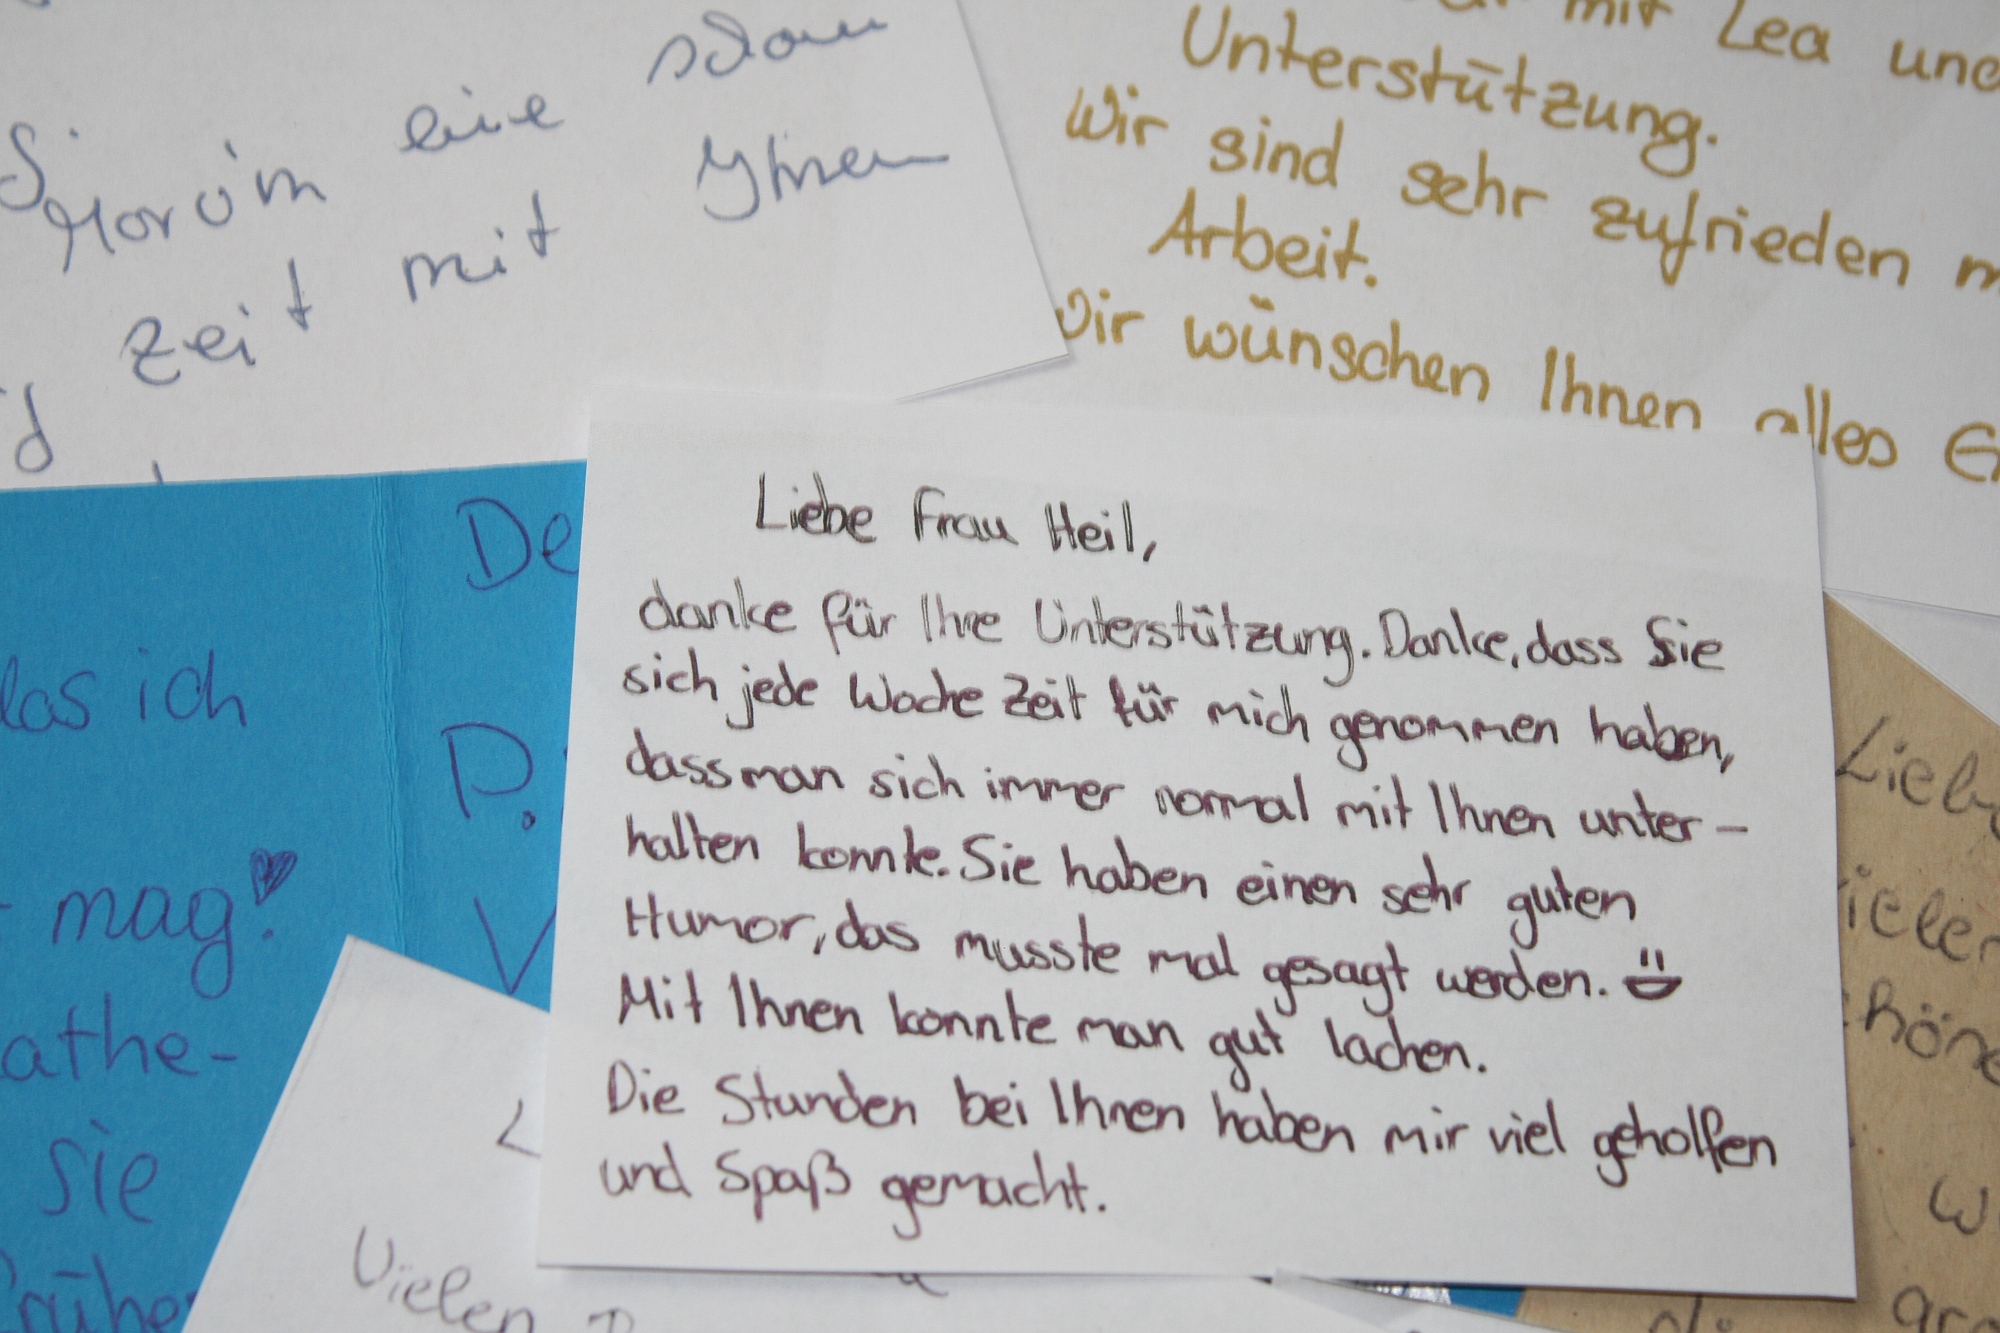 eine schöne
Zeit mit Ihnen
mit Lea und
Unterstützung.
Wir sind sehr zufrieden m
Arbeit.
Wir wünschen Ihnen alles G
De
P.
V
las ich
mag!
athe-
sie
Liebe Frau Heil,
danke für Ihre Unterstützung. Danke, dass Sie
sich jede Woche Zeit für mich genommen haben,
dass man sich immer normal mit Ihnen unter-
halten konnte. Sie haben einen sehr guten
Humor, das musste mal gesagt werden.
Mit Ihnen konnte man gut lachen.
Die Stunden bei Ihnen haben mir viel geholfen
und Spaß gemacht.
Vielen